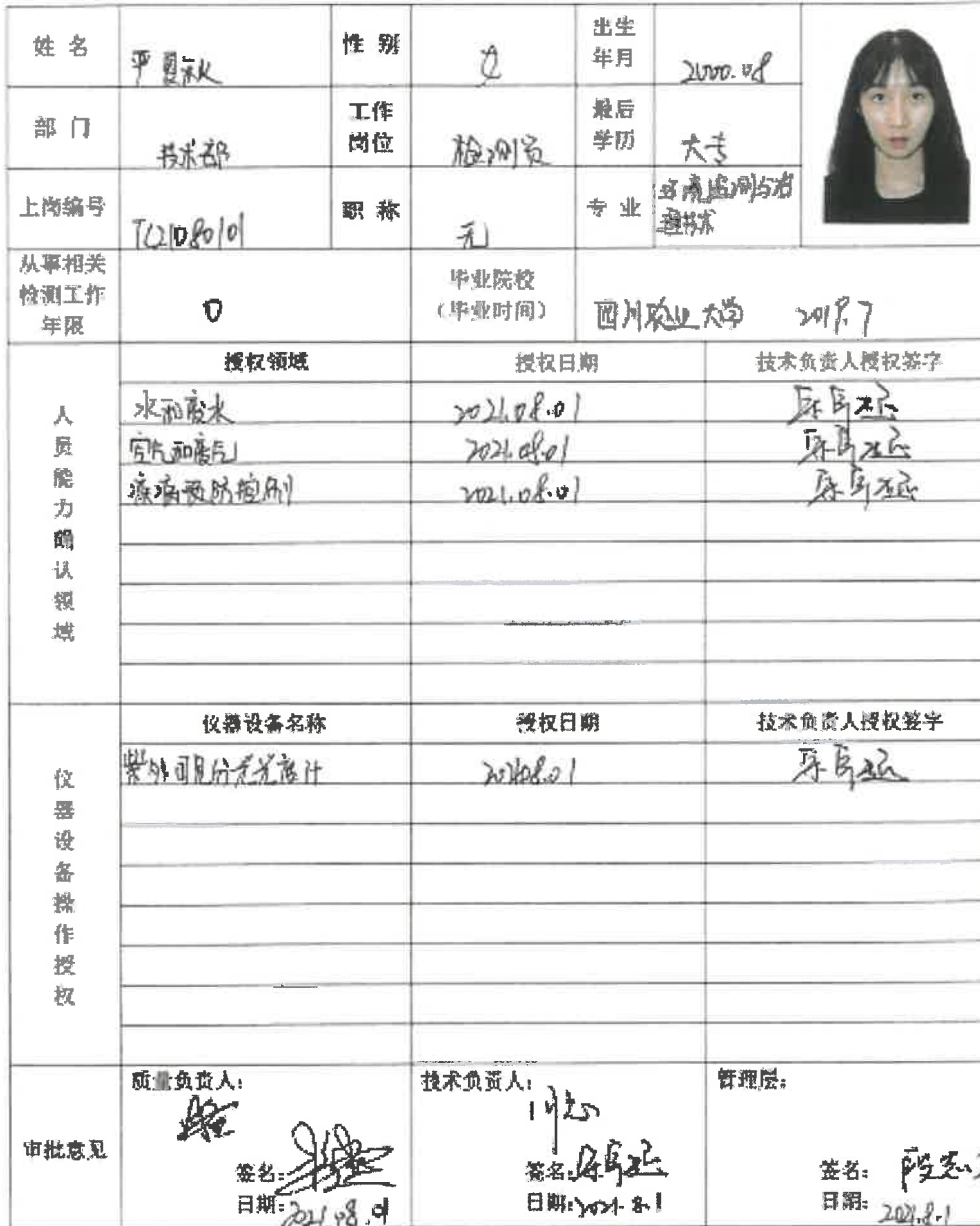 姓 名 平夏秋 性 别 女 出生年月 2000.08
部 门 技术部 工作岗位 检测员 最后学历 大专
上岗编号 TC21080101 职 称 无 专 业 环境监测与治理技术
从事相关检测工作年限 0 毕业院校（毕业时间） 四川农业大学 2019.7
人员能力确认领域
授权领域 授权日期 技术负责人授权签字
水和废水 2021.08.01
空气和废气 2021.08.01
疾病预防控制 2021.08.01
仪器设备操作授权
仪器设备名称 授权日期 技术负责人授权签字
紫外可见分光光度计 2021.08.01
审批意见
质量负责人： 技术负责人： 管理层：
签名： 签名： 签名：
日期：2021.08.01 日期：2021.8.1 日期：2021.8.1